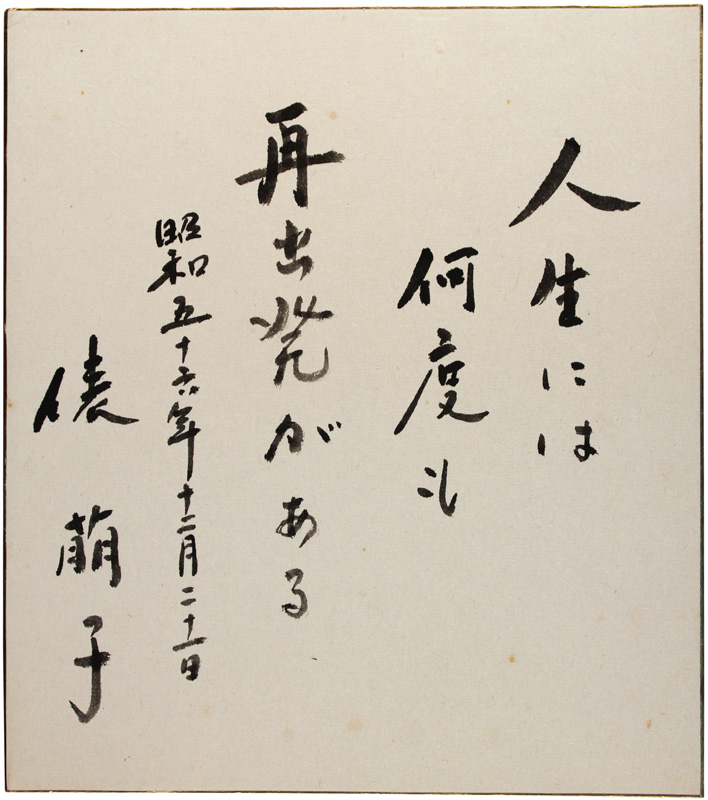 人生には
何度も
再出発がある
昭和五十六年十二月二十一日
俵萠子